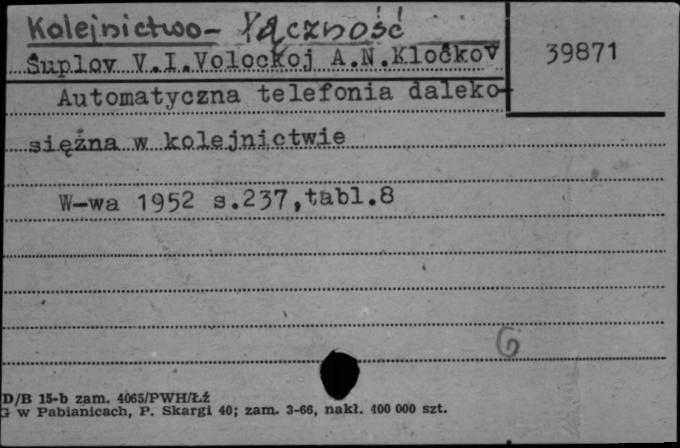 Kolejnictwo - Łączność
Šuplov V.I.Volockoj A.N.Kločkov
39871
Automatyczna telefonia daleko-
siężna w kolejnictwie
W-wa 1952 s.237,tabl.8
G
D/B 15-b zam. 4065/PWH/Łź
G w Pabianicach, P. Skargi 40; zam. 3-66, nakł. 400 000 szt.